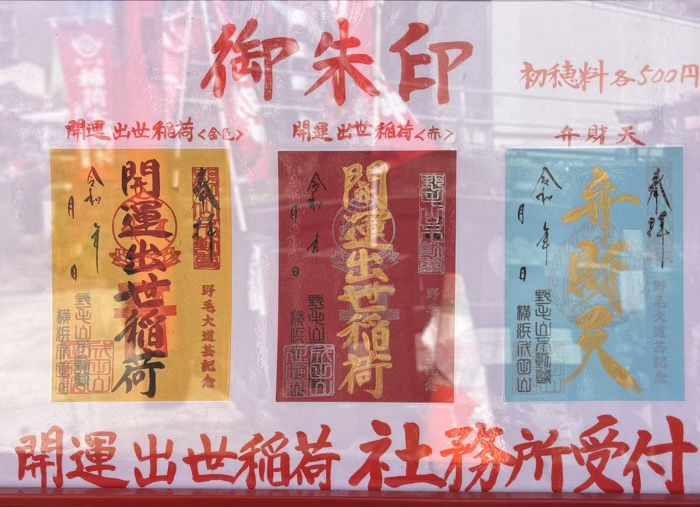 御朱印
初穂料各500円
開運出世稲荷<金色>
開運出世稲荷<赤>
弁財天
奉拝
開運出世稲荷
令和 年
月 日
野毛大道芸記念
野毛山不動尊
横浜成田山
開運出世稲荷
令和 年
月 日
野毛山不動尊
奉拝
弁財天
令和 年
月 日
野毛大道芸記念
野毛山不動尊
横浜成田山
開運出世稲荷 社務所受付